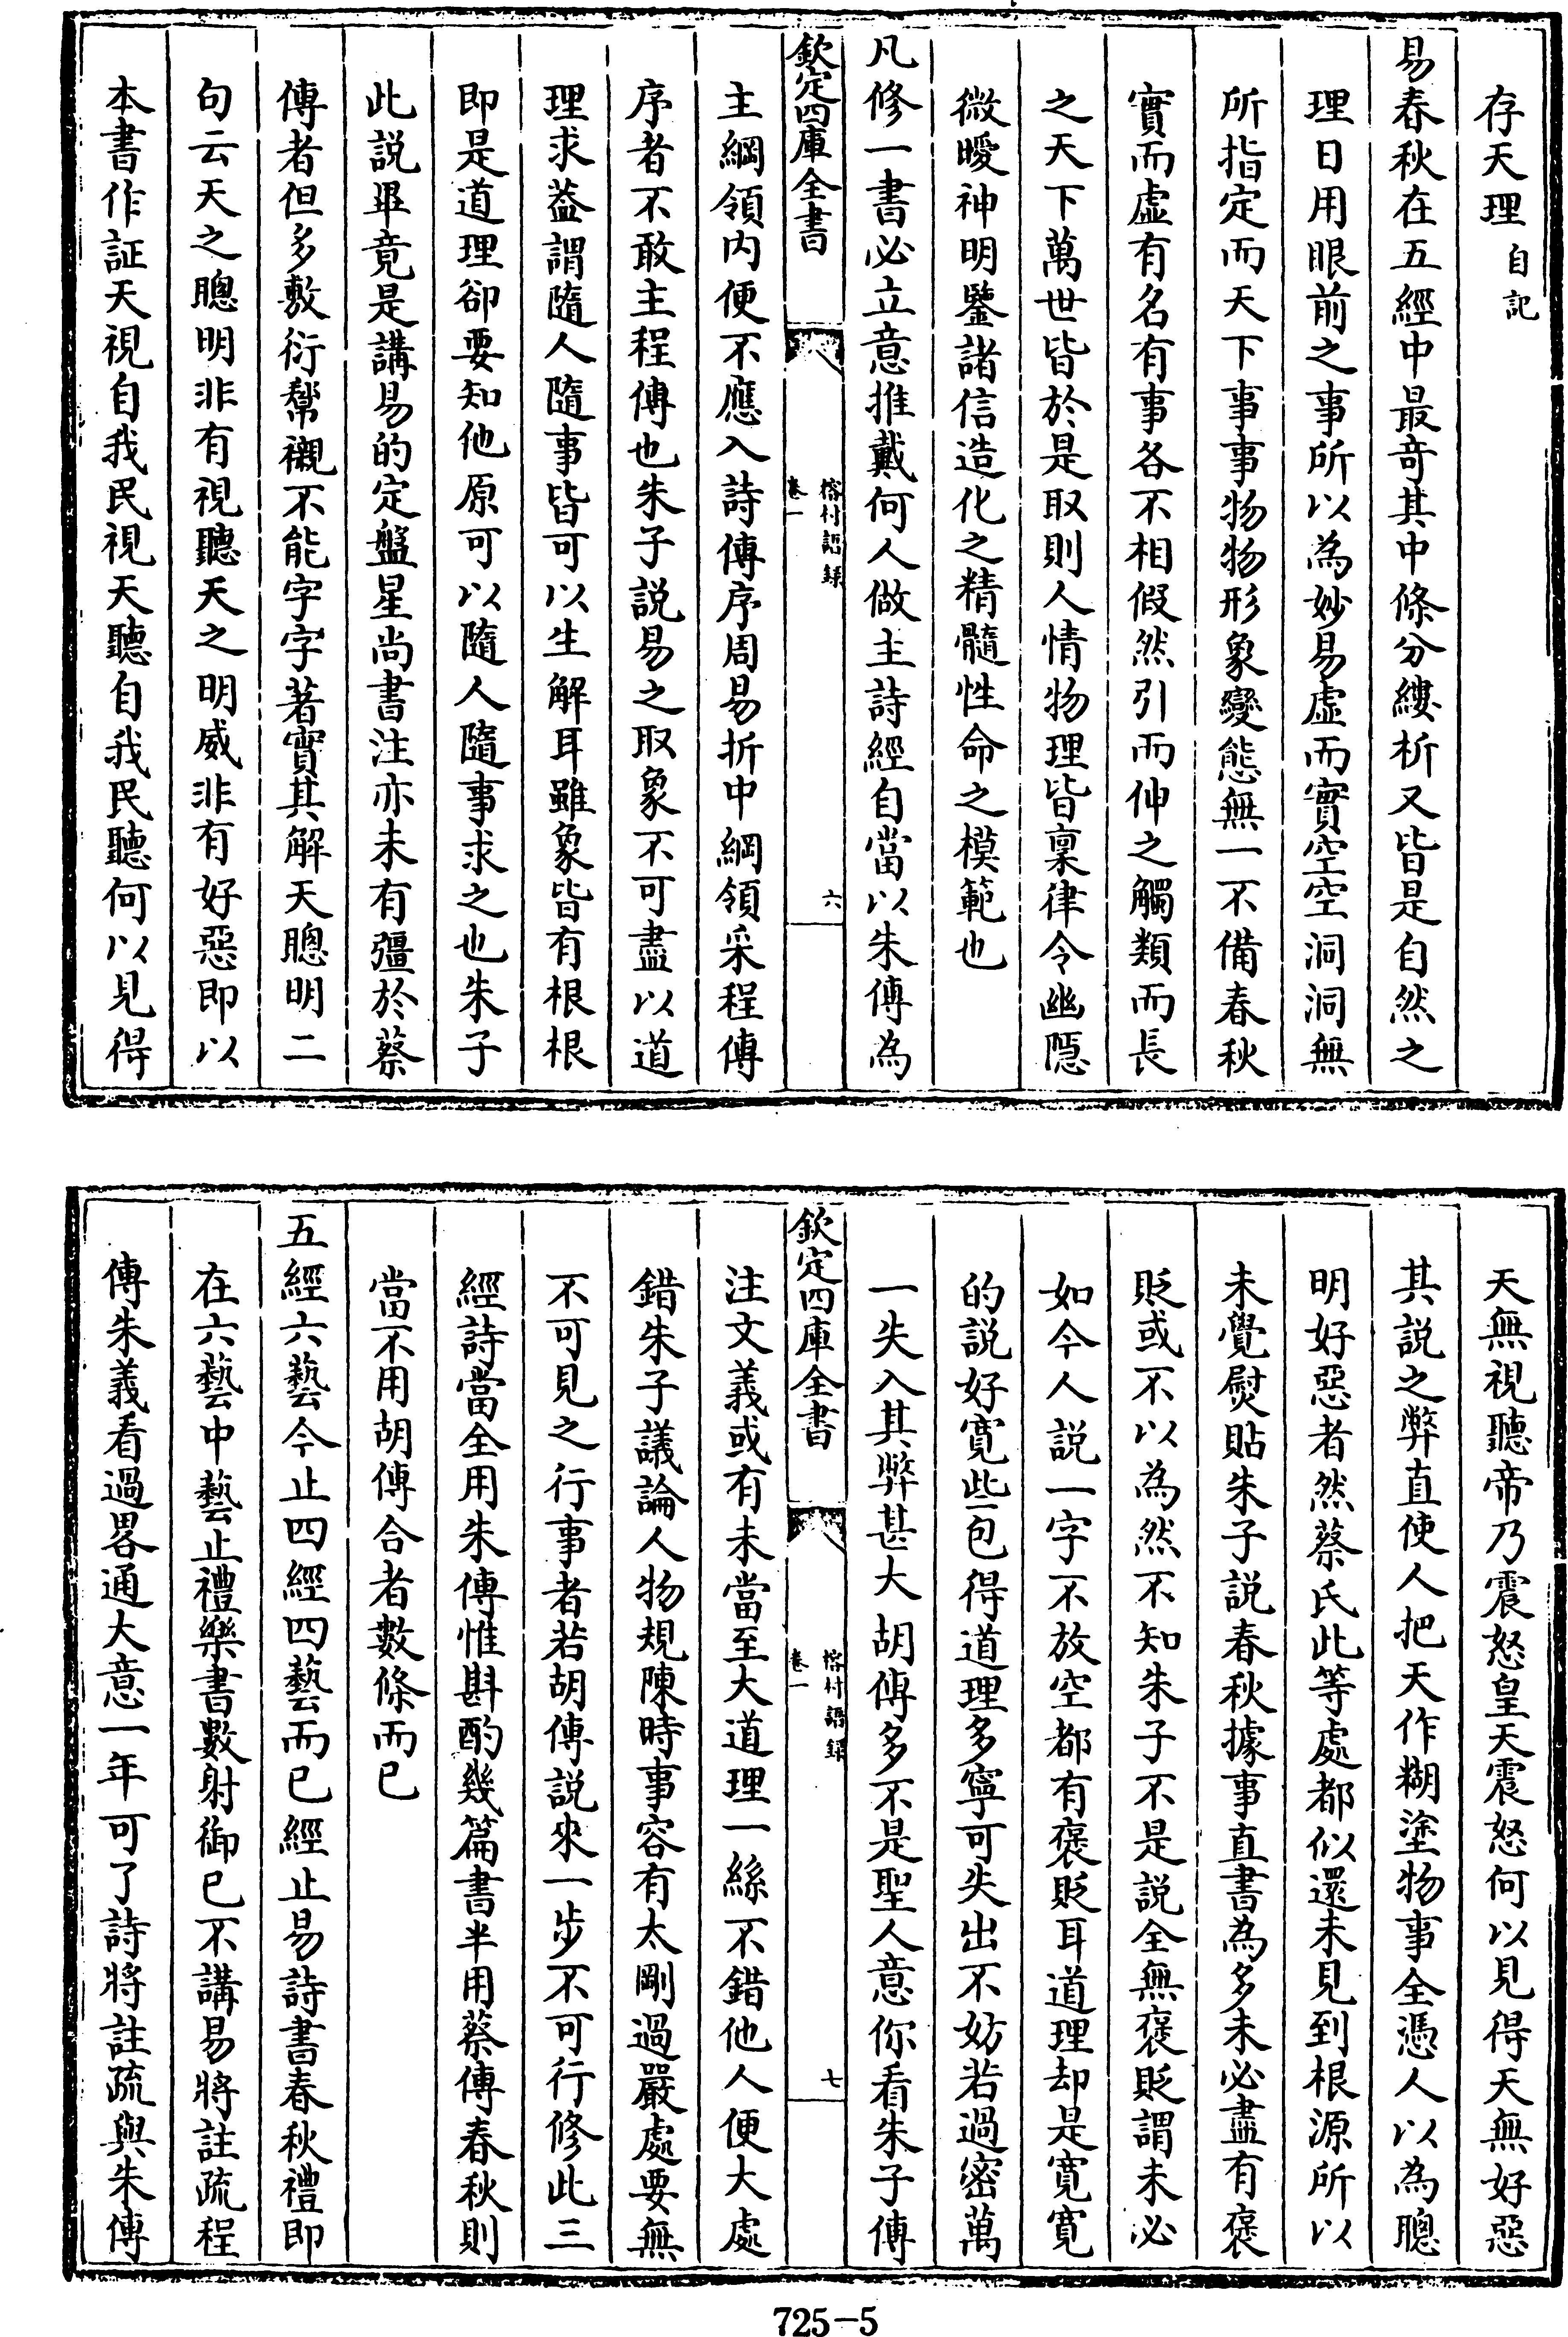 存天理自記
易春秋在五經中最竒其中條分縷析又皆是自然之
理日用眼前之事所以為妙易虚而實空空洞洞無
所指定而天下事事物物形象變態無一不備春秋
實而虚有名有事各不相假然引而伸之觸類而長
之天下萬世皆於是取則人情物理皆稟律令幽隠
微曖神明鑒諸信造化之精髓性命之模範也
凡修一書必立意推戴何人做主詩經自當以朱傳為
欽定四庫全書
榕村語録
卷一
六
主綱領内便不應入詩傳序周易折中綱領采程傳
序者不敢主程傳也朱子説易之取象不可盡以道
理求葢謂隨人隨事皆可以生解耳雖象皆有根根
即是道理卻要知他原可以隨人隨事求之也朱子
此説畢竟是講易的定盤星尚書注亦未有彊於蔡
傳者但多敷衍幫襯不能字字著實其解天聰明二
句云天之聰明非有視聽天之明威非有好惡即以
本書作証天視自我民視天聽自我民聽何以見得
天無視聽帝乃震怒皇天震怒何以見得天無好惡
其説之弊直使人把天作糊塗物事全憑人以為聰
明好惡者然蔡氏此等處都似還未見到根源所以
未覺熨貼朱子説春秋據事直書為多未必盡有褒
貶或不以為然不知朱子不是説全無褒貶謂未必
如今人説一字不放空都有褒貶耳道理却是寛寛
的説好寛些包得道理多寧可失出不妨若過密萬
一失入其弊甚大胡傳多不是聖人意你看朱子傳
欽定四庫全書
榕村語録
卷一
七
注文義或有未當至大道理一絲不錯他人便大處
錯朱子議論人物規陳時事容有太剛過嚴處要無
不可見之行事者若胡傳説來一步不可行修此三
經詩當全用朱傳惟斟酌幾篇書半用蔡傳春秋則
當不用胡傳合者數條而已
五經六藝今止四經四藝而已經止易詩書春秋禮即
在六藝中藝止禮樂書數射御已不講易將註疏程
傳朱義看過畧通大意一年可了詩將註疏與朱傳
725-5